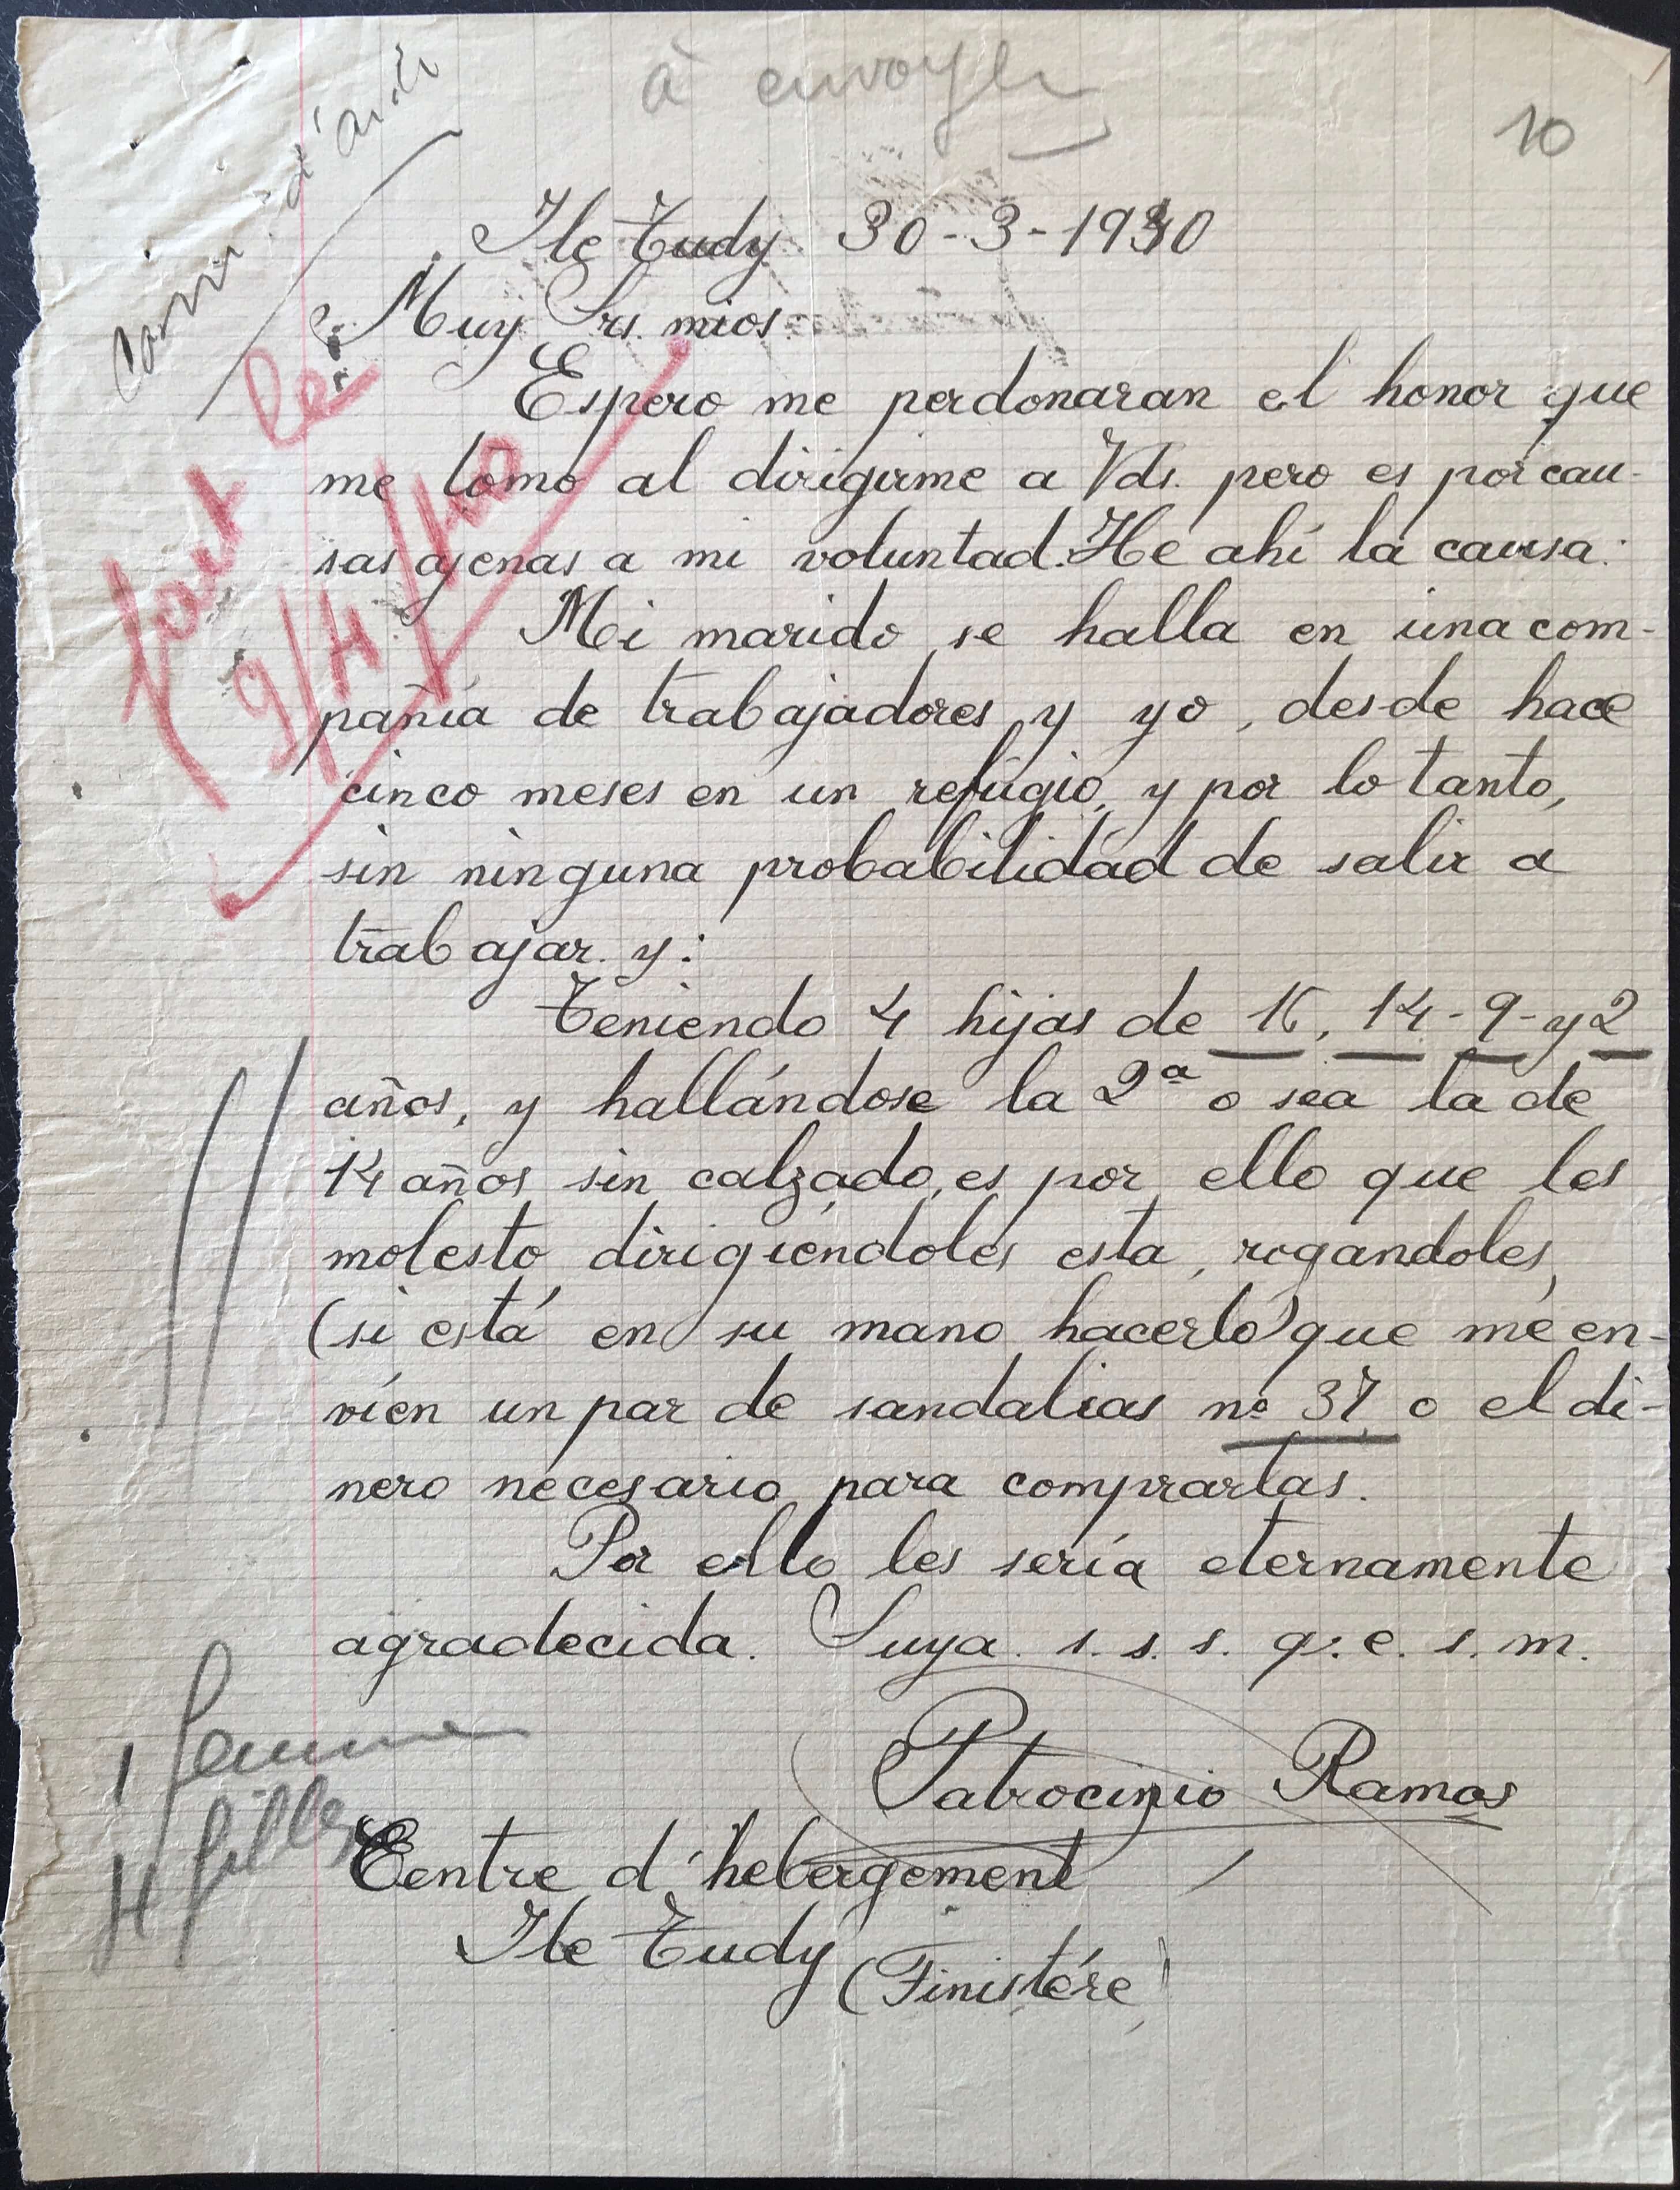 à envoyer
10
Comm. d'
Ile Tudy 30-3-1940
Muy Srs. mios:
fait le
9/4/40
Espero me perdonaran el honor que
me tomo al dirigirme a Vds. pero es por cau-
sas ajenas a mi voluntad. He ahí la causa:
Mi marido se halla en una com-
pañía de trabajadores y yo, desde hace
cinco meses en un refugio, y por lo tanto,
sin ninguna probabilidad de salir a
trabajar. y:
Teniendo 4 hijas de 16, 14-9-y 2
años, y hallándose la 2ª o sea la de
14 años sin calzado, es por ello que les
molesto dirigiéndoles esta, rogandoles,
(si está en su mano hacerlo) que me en-
víen un par de sandalias nº 37 o el di-
nero necesario para comprarlas.
Por ello les sería eternamente
agradecida. Suya. s. s. s. q. e. s. m.
Patrocinio Ramos
1 femme
4 filles
Centre d'hebergement
Ile Tudy
(Finistére)